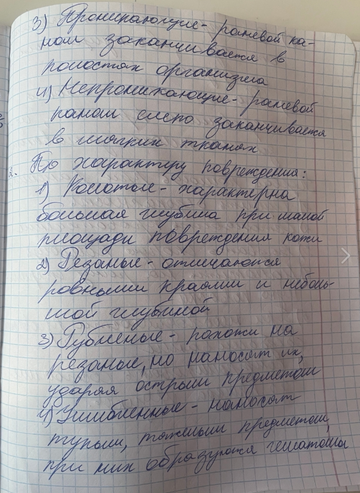 3) Проникающие - раневой ка-
нал заканчивается в
полостях организма
4) Непроникающие - раневой
канал слепо заканчивается
в мягких тканях
По характеру повреждения:
1) Колотые - характерна
большая глубина при малой
площади повреждения кожи
2) Резаные - отличаются
ровными краями и неболь-
шой глубиной
3) Рубленые - похожи на
резаные, но наносят их,
ударяя острым предметом
4) Ушибленные - наносят
тупым, тяжелым предметом,
при них образуются гематомы